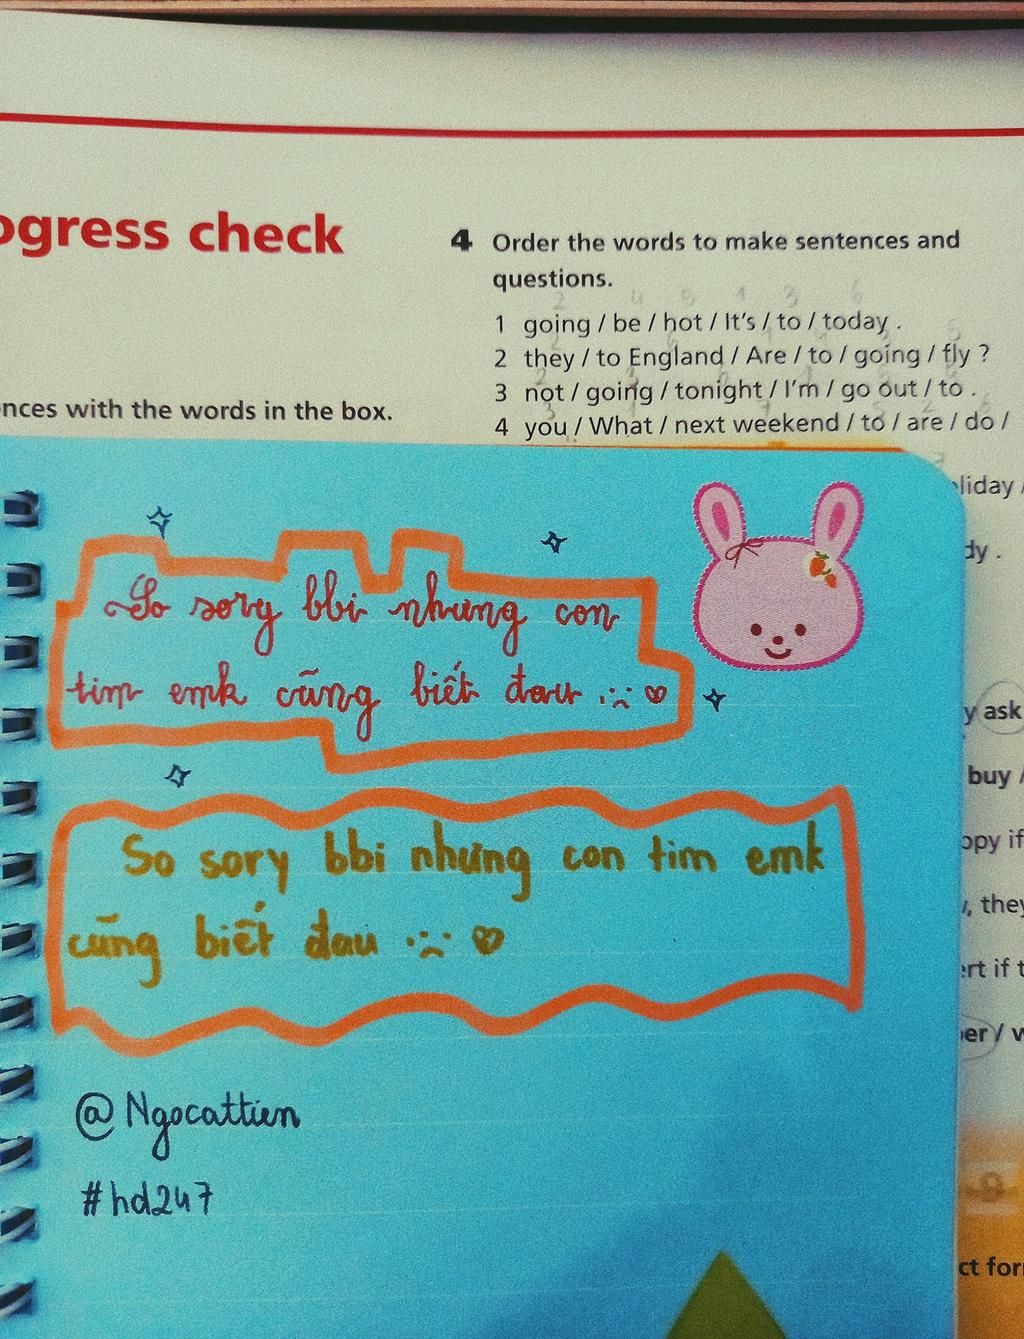 ogress check
nces with the words in the box.
4 Order the words to make sentences and
questions.
1 going / be / hot / It's / to / today .
2 they / to England / Are / to / going / fly ?
3 not / going / tonight / I'm / go out / to .
4 you / What / next weekend / to / are / do /
liday /
dy .
y ask
buy /
ppy if
, they
ert if t
er / w
9
ct for
So sory bbi nhưng con
tim emk cũng biết đau .:
So sory bbi nhưng con tim emk
cũng biết đau
@Ngocattien
#hd247